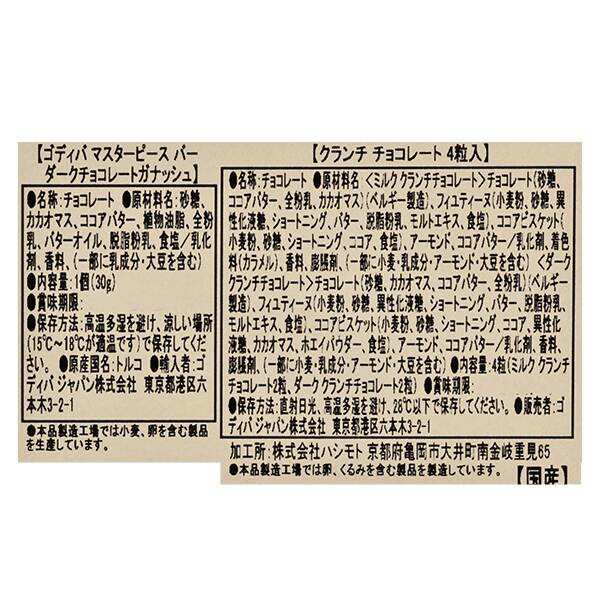 【ゴディバ マスターピース バー
ダークチョコレートガナッシュ】
●名称:チョコレート ●原材料名:砂糖、
カカオマス、ココアバター、植物油脂、全粉
乳、バターオイル、脱脂粉乳、食塩/乳化
剤、香料、(一部に乳成分・大豆を含む)
●内容量:1個(30g)
●賞味期限:
●保存方法:高温多湿を避け、涼しい場所
(15℃~18℃が適温です)で保存してくださ
い。 ●原産国名:トルコ ●輸入者:ゴ
ディバ ジャパン株式会社 東京都港区六
本木3-2-1
●本品製造工場では小麦、卵を含む製品
を生産しています。
【クランチ チョコレート 4粒入】
●名称:チョコレート ●原材料名 <ミルク クランチチョコレート>チョコレート{砂糖、
ココアバター、全粉乳、カカオマス}(ベルギー製造)、フィユティーヌ(小麦粉、砂糖、異
性化液糖、ショートニング、バター、脱脂粉乳、モルトエキス、食塩)、ココアビスケット(
小麦粉、砂糖、ショートニング、ココア、食塩)、アーモンド、ココアバター/乳化剤、着色
料(カラメル)、香料、膨脹剤、(一部に小麦・乳成分・アーモンド・大豆を含む) <ダーク
クランチチョコレート>チョコレート{砂糖、カカオマス、ココアバター、全粉乳}(ベルギー
製造)、フィユティーヌ(小麦粉、砂糖、異性化液糖、ショートニング、バター、脱脂粉乳、
モルトエキス、食塩)、ココアビスケット(小麦粉、砂糖、ショートニング、ココア、異性化
液糖、カカオマス、ホエイパウダー、食塩)、アーモンド、ココアバター/乳化剤、香料、
膨脹剤、(一部に小麦・乳成分・アーモンド・大豆を含む) ●内容量:4粒(ミルク クランチ
チョコレート2粒、ダーク クランチチョコレート2粒) ●賞味期限:
●保存方法:直射日光、高温多湿を避け、28℃以下で保存してください。 ●販売者:ゴ
ディバ ジャパン株式会社 東京都港区六本木3-2-1
加工所:株式会社ハシモト 京都府亀岡市大井町南金岐重見65
●本品製造工場では卵、くるみを含む製品を製造しています。
【国産】